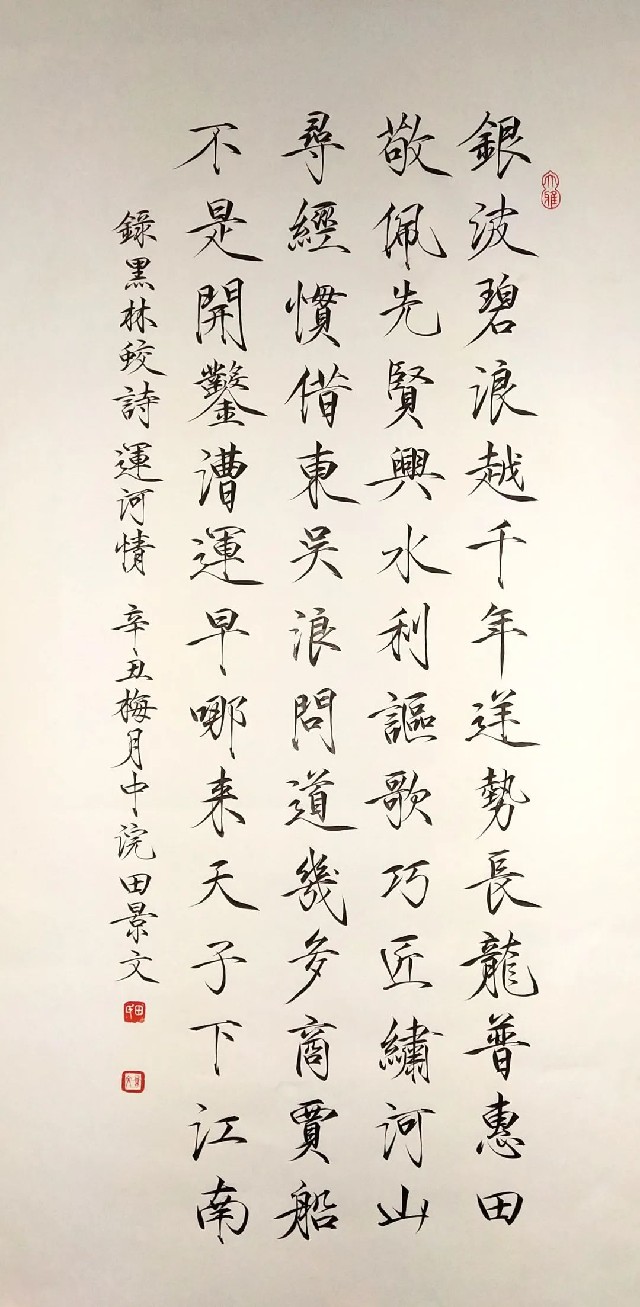 銀波碧浪越千年逆勢長龍普惠田
敬佩先賢興水利謳歌巧匠繡河山
尋經慣借東吳浪問道幾多商賈船
不是開鑿漕運早哪来天子下江南
錄黑林蛟詩運河情 辛丑梅月中浣田景文
大雅